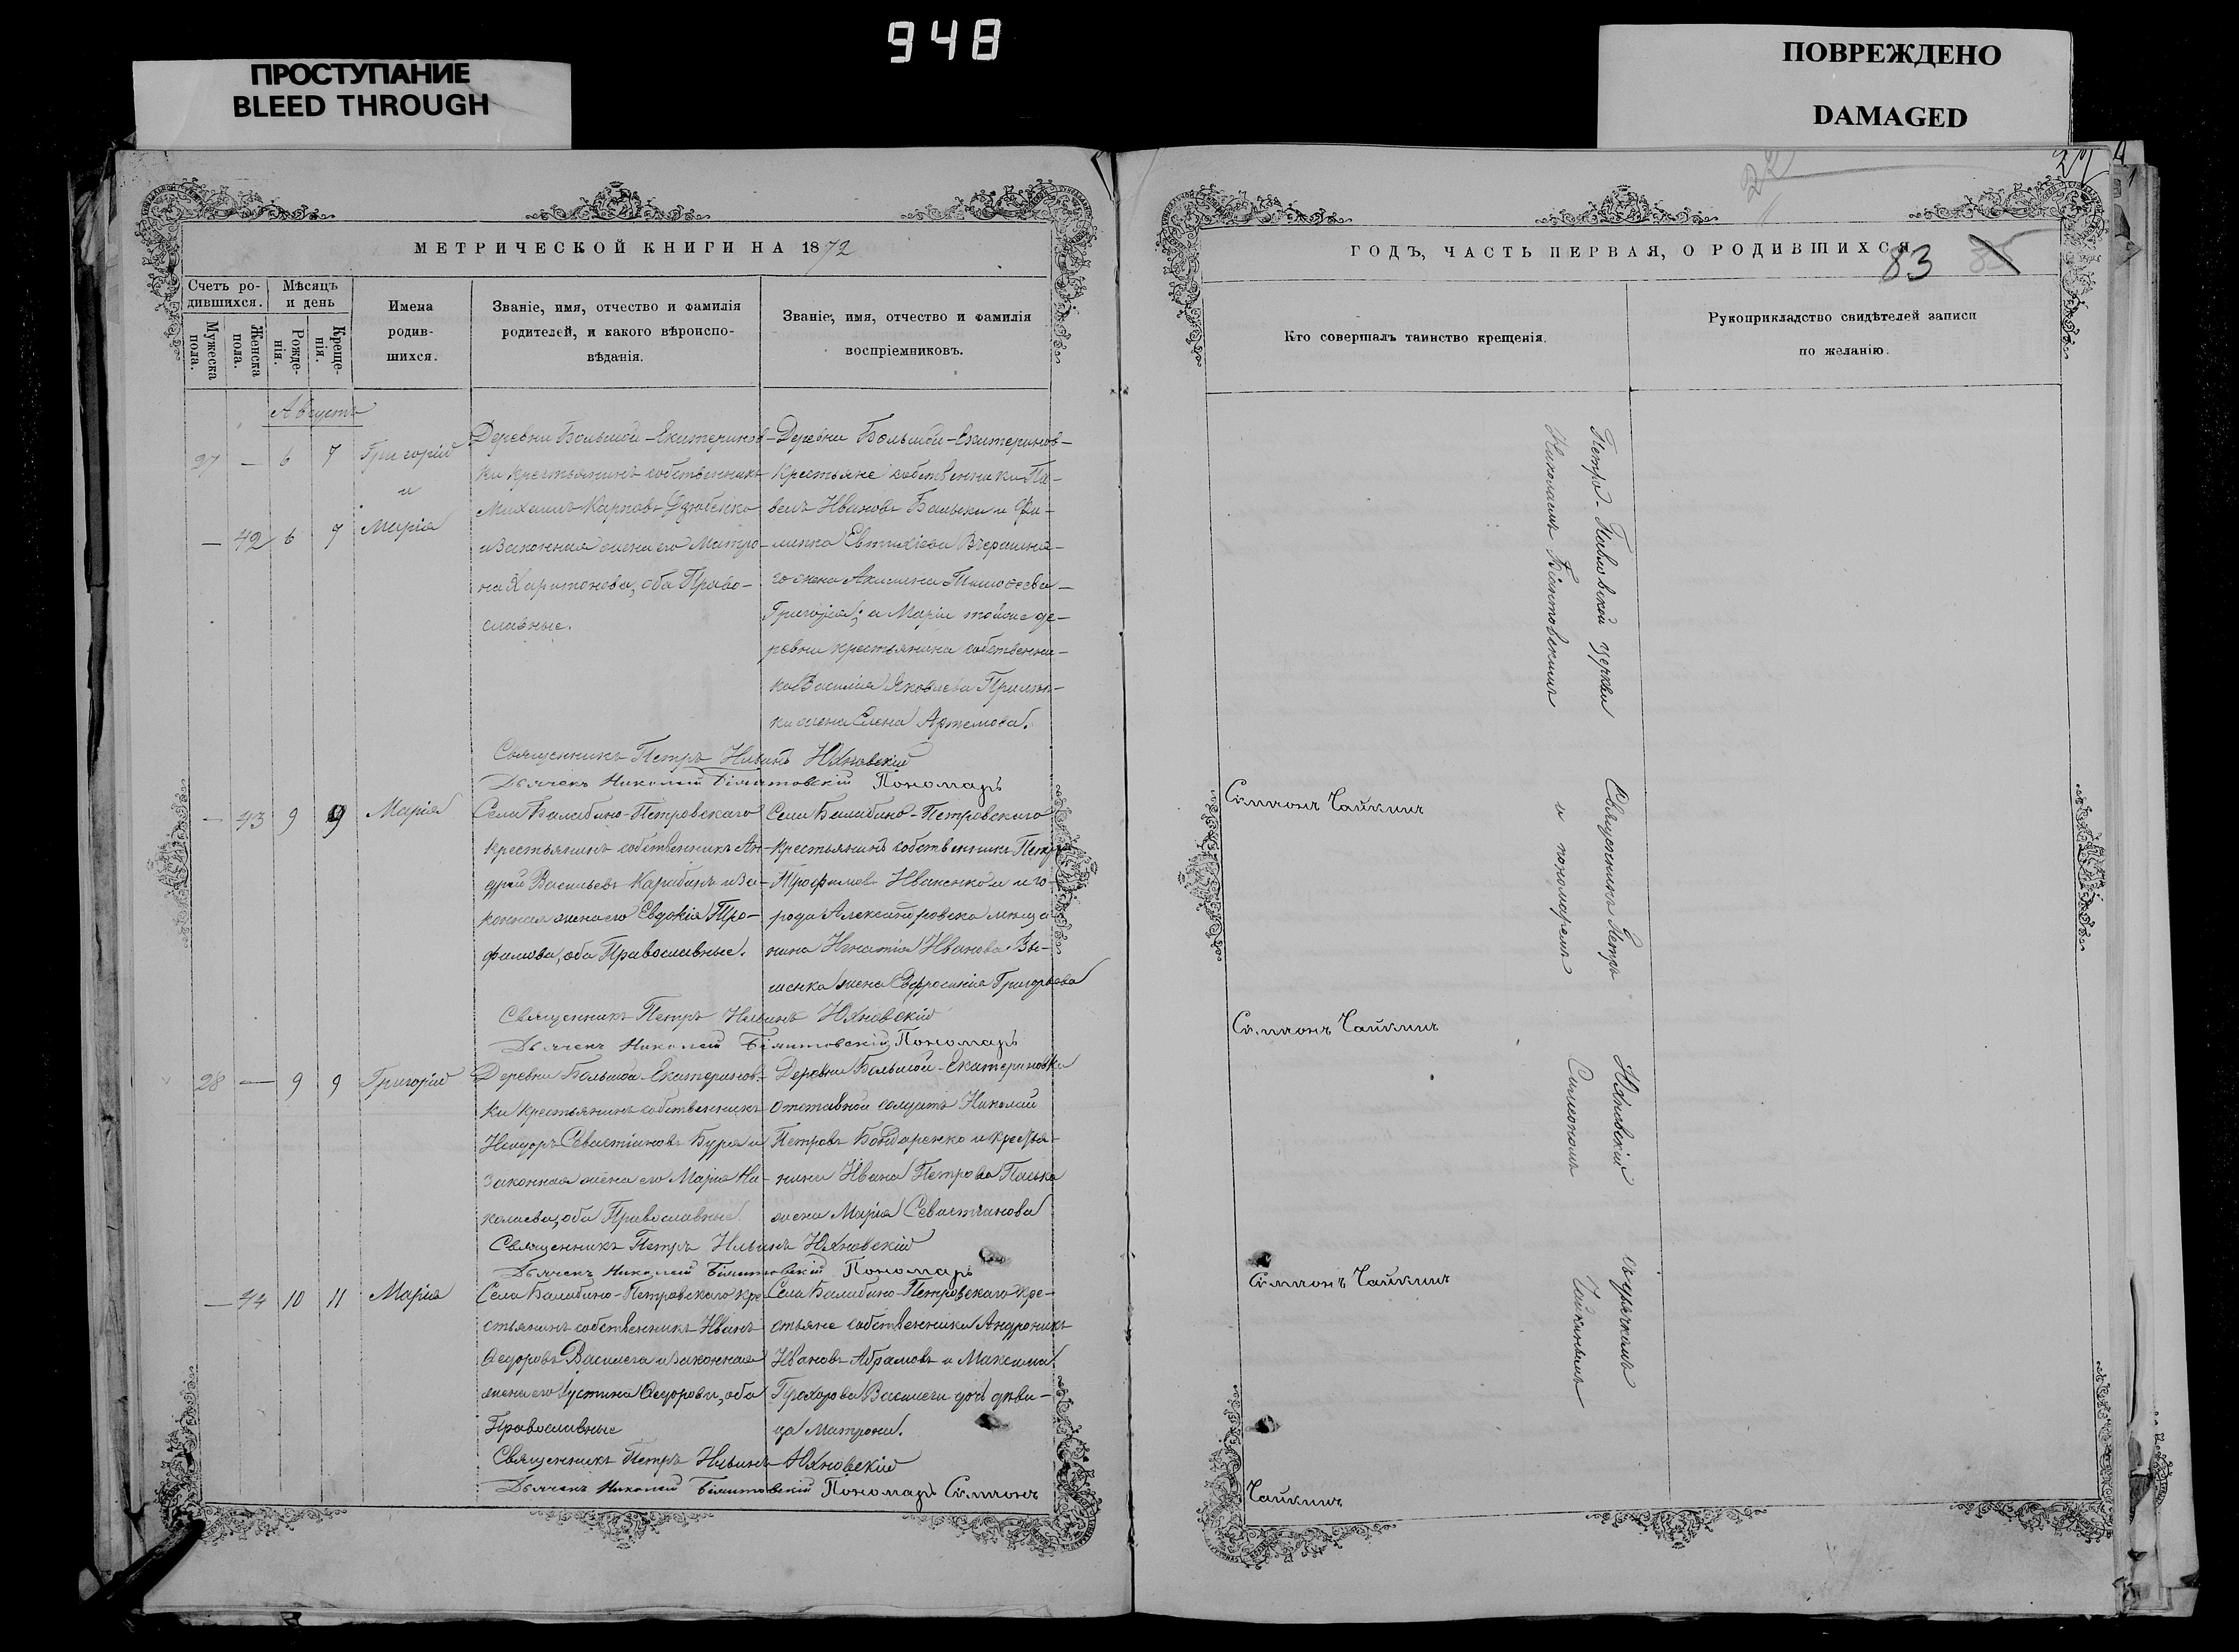 948
ПРОСТУПАНИЕ
BLEED THROUGH
ПОВРЕЖДЕНО
DAMAGED
22
27
МЕТРИЧЕСКОЙ КНИГИ НА 1872
Счетъ ро-
дившихся.
Мужеска
пола.
Женска
пола.
Мѣсяцъ
и день
Рожде-
нія.
Креще-
нія.
Имена
родив-
шихся.
Званіе, имя, отчество и фамилія
родителей, и какого вѣроиспо-
вѣданія.
Званіе, имя, отчество и фамилія
воспріемниковъ.
Августъ
27 — 6 7 Григорій
и
— 42 6 7 Марія
Деревни Большой-Екатеринов-
ки крестьянинъ собственникъ
Михаилъ Карповъ Дзюбенко
и законная жена его Матро-
на Харитонова, оба Право-
славные.
Деревни Большой-Екатеринов-
крестьяне собственники Па-
велъ Ивановъ и Фи-
липпа Евтихіева
го жена Акилина Тимоѳеева
Григорія; а Маріи тойже де-
ревни крестьянина собственни-
ка Василія Яковлева
ки жена Елена Артемова.
Священникъ Петръ Ильинъ Юхновскій
Дьячекъ Николай Бѣлитовскій Пономарь
— 43 9 9 Марія
Села Балабино-Петровскаго
крестьянинъ собственникъ Ан-
дрей Васильевъ Карабанъ и за-
конная жена его Евдокія Тро-
фимова, оба Православные.
Села Балабино-Петровскаго
крестьянинъ собственникъ Петръ
Трофимовъ Иваненко и го-
рода Александровска мѣща-
нина Игнатія Иванова
жена Евфросинія Григорьева
Священникъ Петръ Ильинъ Юхновскій
Дьячекъ Николай Бѣлитовскій Пономарь
28 — 9 9 Григорій
Деревни Большой-Екатеринов-
ки крестьянинъ собственникъ
Исидоръ Севастіановъ Буря и
законная жена его Марія Ни-
колаева, оба Православные
Деревни Большой-Екатериновки
отставной солдатъ Николай
Петровъ Бондаренко и крестья-
нина Ивана Петрова
жена Марія Севастіанова
Священникъ Петръ Ильинъ Юхновскій
Дьячекъ Николай Бѣлитовскій Пономарь
— 44 10 11 Марія
Села Балабино-Петровскаго кре-
стьянинъ собственникъ Иванъ
Ѳедоровъ Василега и законная
жена его Іустина Ѳедорова, оба
Православные
Села Балабино-Петровскаго кре-
стьяне собственники Андроникъ
Ивановъ Абрамовъ и Максима
Прохорова Василеги дочь дѣви-
ца Матрона.
Священникъ Петръ Ильинъ Юхновскій
Дьячекъ Николай Бѣлитовскій Пономарь Симеонъ
ГОДЪ, ЧАСТЬ ПЕРВАЯ, О РОДИВШИХСЯ
83 85
Кто совершалъ таинство крещенія.
Рукоприкладство свидѣтелей записи
по желанію.
Петро-Павловской церкви Священникъ Петръ Юхновскій съ дьячкомъ
Николаемъ Бѣлитовскимъ и пономаремъ Симеономъ Чайкинымъ
Симеонъ Чайкинъ
Симеонъ Чайкинъ
Симеонъ Чайкинъ
Чайкинъ